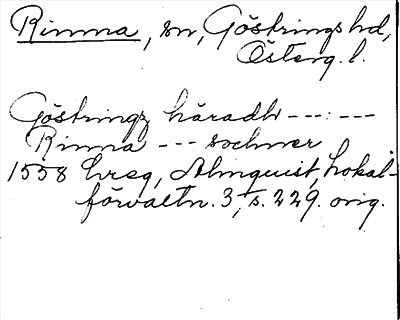 Rinna, sn, Göstrings hd,
Österg. l.
Göstringz häradh ---:---
Rinna --- sochner
1558 hreg, Almquist, Lokal-
förvaltn. 3, s. 229. orig.